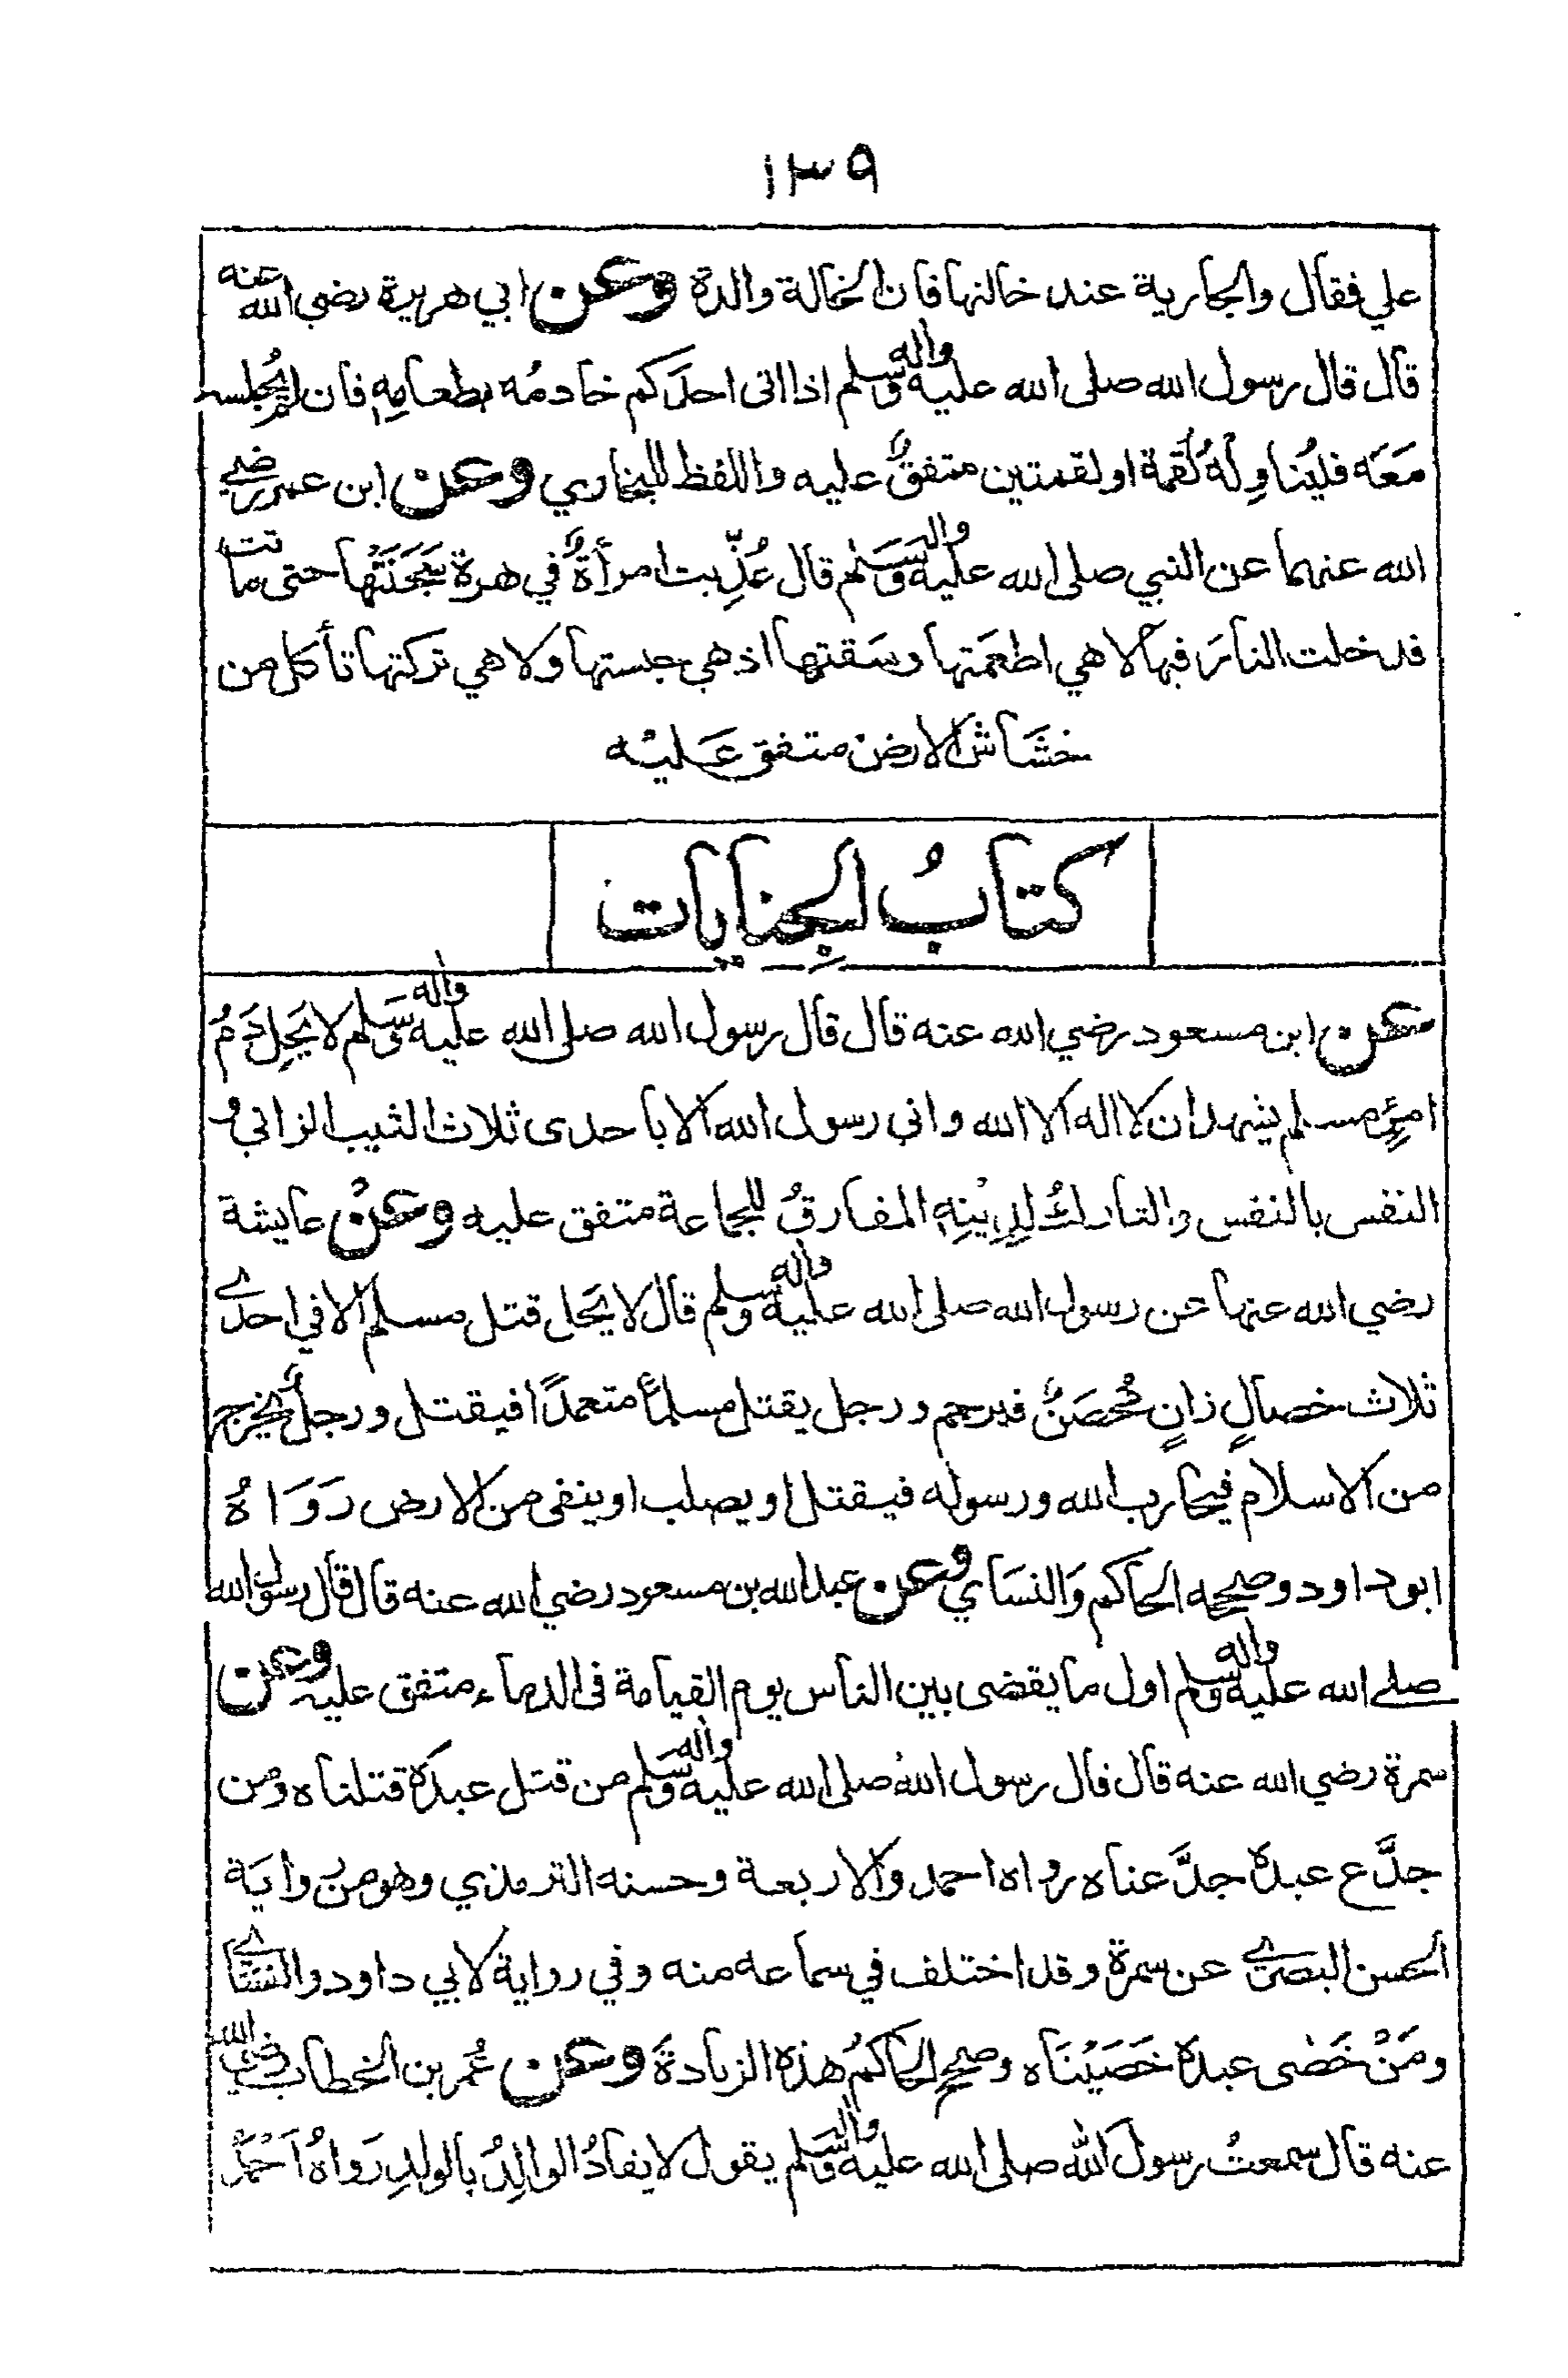 ١٣٩
علي فقال والجارية عند خالتها فان الخالة والدة وعن ابي هريرة رضي الله عنه
قال قال رسول الله صلى الله عليه واله وسلم اذا اتى احدَكم خادمُه بطعامِهِ فان لم يُجلسه
مَعَه فليُناوِلْهُ لُقمة او لقمتين متفقٌ عليه واللفظ للبخاري وعن ابن عمر رضي
الله عنهما عن النبي صلى الله عليه واله وسَلم قال عُذِّبت امرأةٌ في هرة سَجَنَتْها حتى ماتت
فدخلت النارَ فيها لا هي اطعَمتها وسَقتها اذ هي حبستها ولا هي تركتها تأكل من
خشَاش الارض متفق عَليْه
كتابُ الجِنايات
عن ابن مسعود رضي الله عنه قال قال رسول الله صلى الله عليه واله وسَلم لا يَحِل دَمُ
امرِئٍ مسلم يشهد ان لا اله الا الله واني رسول الله الا باحدى ثلاث الثيب الزاني و
النفس بالنفس والتاركُ لِدِيْنِهِ المفارقُ للجماعة متفق عليه وعنْ عايشة
رضي الله عنها عن رسول الله صلى الله عليه واله وسلم قال لا يَحل قتل مسلم الا في احدى
ثلاث خصالٍ زانٍ مُحصَنٌ فيرجم ورجل يقتل مسلماً متعمدًا فيقتل ورجلٌ يخرج
من الاسلام فيحارب الله ورسوله فيقتل او يصلب او ينفى من الارض رَوَاهُ
ابو داود وصححه الحاكم وَالنسَاي وعن عبد الله بن مسعود رضي الله عنه قال قال رسول الله
صلى الله عليه واله وسلم اول ما يقضى بين الناس يوم القيامة فى الدماء متفق عليه وعن
سمرة رضي الله عنه قال قال رسول اللهُ صلى الله عليه واله وسَلم من قتل عبدَه قتلناه ومن
جدَّع عبدَه جدَّعناه رواه احمد والاربعة وحسنه الترمذي وهو من روايَة
الحسن البصري عن سمرة وقد اختلف في سماعه منه وفي رواية لابي داود والنسَاي
ومَنْ خَصَى عبدَه خَصَيْنَاه وصحح الحاكمُ هذه الزيادةَ وعن عُمر بن الخطاب رضي الله
عنه قال سمعتُ رسولَ الله صلى الله عليه واله وسَلم يقول لا يقادُ الوالِدُ بالولدِ رَواهُ اَحْمَدُ